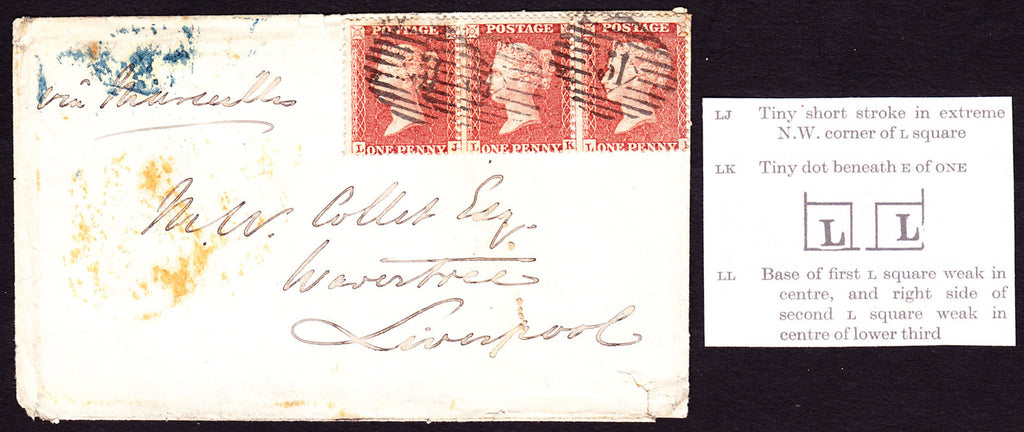 via Marseilles
POSTAGE POSTAGE POSTAGE
L ONE PENNY J L ONE PENNY K L ONE PENNY L
M.W. Collet Esq.
Wavertree
Liverpool
LJ Tiny short stroke in extreme
N.W. corner of L square
LK Tiny dot beneath E of ONE
L L
LL Base of first L square weak in
centre, and right side of
second L square weak in
centre of lower third